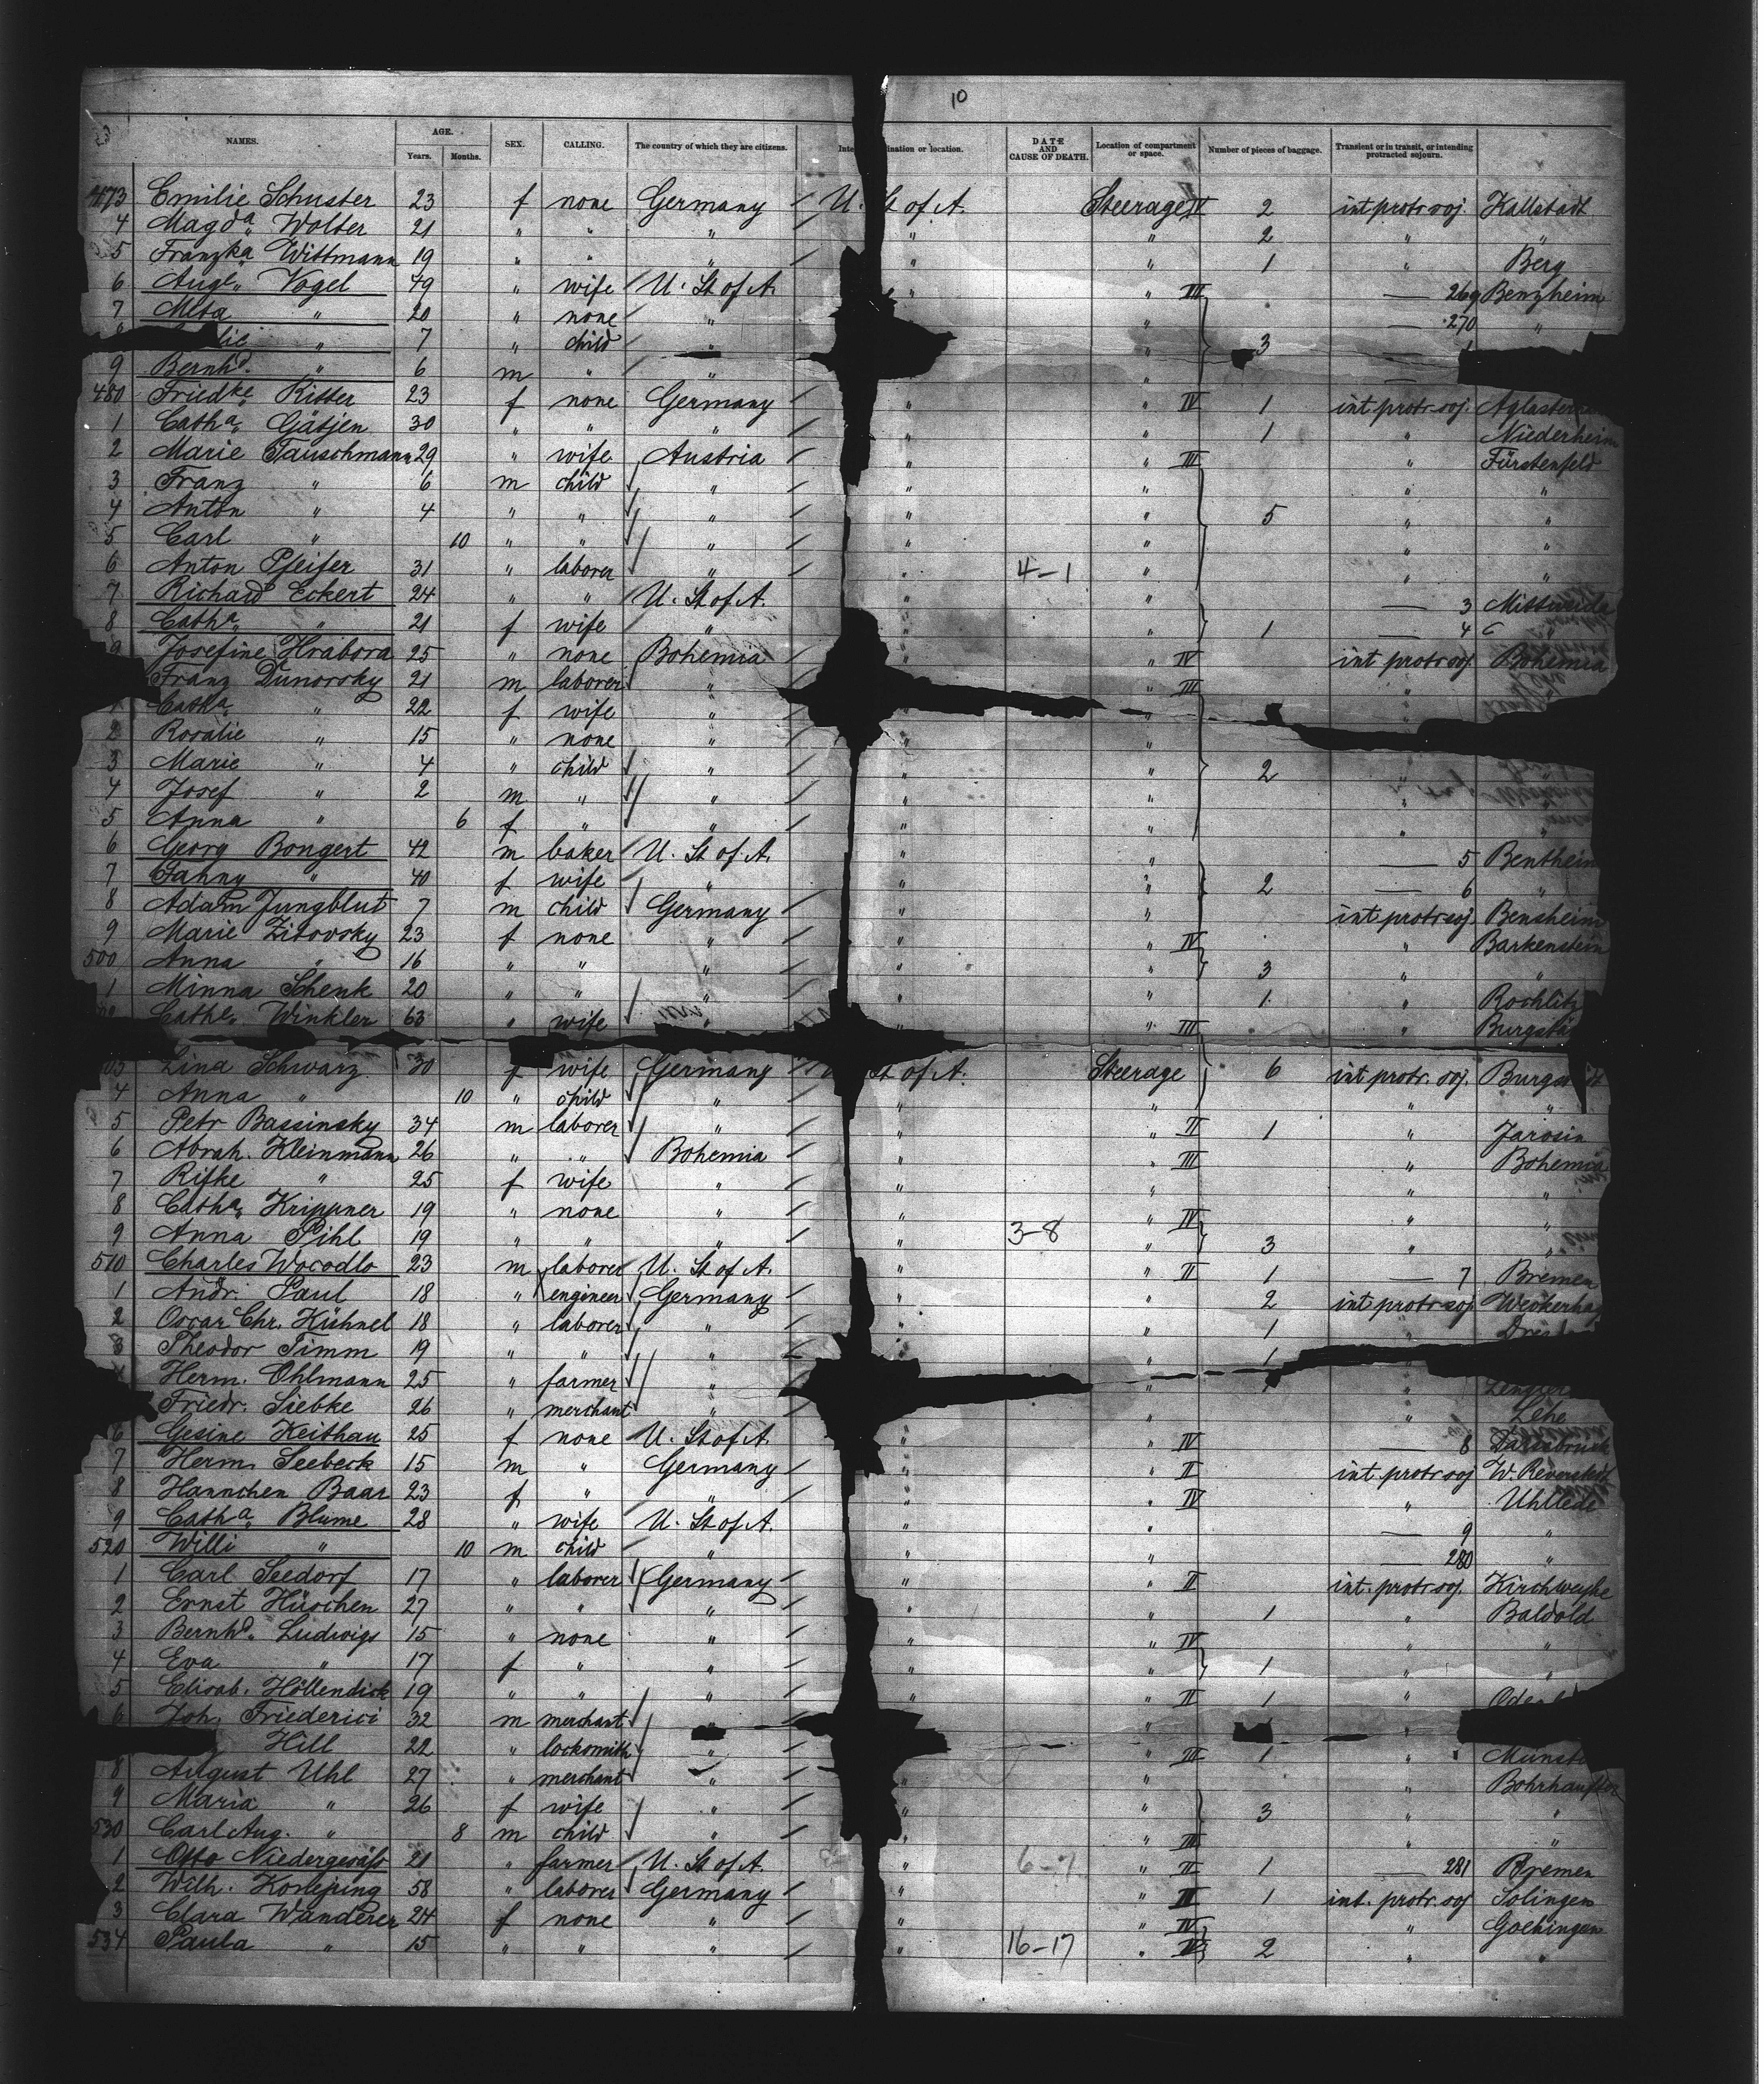 10
NAMES. AGE. Years. Months. SEX. CALLING. The country of which they are citizens. Inte ination or location. DATE AND CAUSE OF DEATH. Location of compartment or space. Number of pieces of baggage. Transient or in transit, or intending protracted sojourn.
473 Emilie Schuster 23 f none Germany U. St of A. Steerage 2 int protr. soj. Kallstadt
4 Magda Wolter 21 " " " " " 2 " "
5 Franzka Wittmann 19 " " " " " 1 " Berg
6 Auge Vogel 49 " wife U. St of A. " " III — 269 Benzheim
7 Meta " 20 " none " " — 270 "
lie " 7 " child " " 3
9 Bernhd. " 6 m " " "
480 Friedke Ritter 23 f none Germany " " IV 1 int protr. soj.
1 Catha Gätjen 30 " " " " " 1 " Niederheim
2 Marie Tauschmann 29 " wife Austria " " III " Fürstenfeld
3 Franz " 6 m child " " " " "
4 Anton " 4 " " " " " 5 " "
5 Carl " 10 " " " " " " "
6 Anton Pfeifer 31 " laborer " " 4-1 " " "
7 Richard Eckert 24 " " U. St of A. " " — 3 Mittweida
8 Catha " 21 f wife " " " 1 — 4
9 Josefine Hrabora 25 " none Bohemia " " IV int protr soj Bohemia
Franz Dunorsky 21 m laborer " " III "
Catha " 22 f wife " "
2 Rosalie " 15 " none " " "
3 Marie " 4 " child " " " 2 "
4 Josef " 2 m " " " " "
5 Anna " 6 f " " " " " "
6 Georg Bongert 42 m baker U. St of A. " " — 5 Bentheim
7 Fanny " 40 f wife " " " 2 — 6 "
8 Adam Jungblut 7 m child Germany " " int protr soj. Bensheim
9 Marie Zitovsky 23 f none " " " IV " Barkenstein
500 Anna " 16 " " " " " 3 " "
1 Minna Schenk 20 " " " " " 1 " Rochlitz
Cathe Winkler 63 " wife " " " III " Burgstä
03 Lina Schwarz 30 f wife Germany St of A. Steerage 6 int protr. soj. Burgst dt
4 Anna " 10 " child " " " " "
5 Petr Bassinsky 34 m laborer " " " II 1 " Jarosin
6 Abrah. Kleinmann 26 " " Bohemia " " III " Bohemia
7 Rifke " 25 f wife " " " " "
8 Catha Krippner 19 " none " " " IV " "
9 Anna Pihl 19 " " " " 3-8 " 3 " "
510 Charles Wocodlo 23 m laborer U. St of A. " " II 1 — 7 Bremen
1 Andr. Paul 18 " engineer Germany " " 2 int protr soj
2 Oscar Chr. Kühnel 18 " laborer " " " 1 " Dresd
3 Theodor Timm 19 " " " " 1
Herm. Ohlmann 25 " farmer " " 1 "
Friedr. Siebke 26 " merchant " " " Lehe
6 Gesine Keithau 25 f none U. St of A. " " IV — 8
7 Herm. Seebeck 15 m " Germany " " II int protr soj
8 Hannchen Baar 23 f " " " " IV " Uhtlede
9 Catha Blume 28 " wife U. St of A. " " — 9 "
520 Willi " 10 m child " " " — 280 "
1 Carl Seedorf 17 " laborer Germany " " II int. protr. soj. Kirchweyhe
2 Ernst Hüschen 27 " " " " " 1 " Baldold
3 Bernhd. Ludwigs 15 " none " " " IV " "
4 Eva " 17 f " " " " 1 " "
5 Elisab. Höllendick 19 " " " " " II 1 "
6 Joh. Friederici 32 m merchant
Hill 22 " locksmith " " III 1 " Münst
8 August Uhl 27 " merchant " " " " Bohrhauften
9 Maria " 26 f wife " " " 3 " "
530 Carl Aug. " 8 m child " " " III " "
1 Otto Niedergesäss 21 " farmer U. St of A. " 6-7 " II 1 — 281 Bremen
2 Wilh. 58 " laborer Germany " " II 1 int. protr. soj Solingen
3 Clara Wanderer 24 f none " " " IV " Goehingen
534 Paula " 15 " " " " 16-17 " IV 2 " "